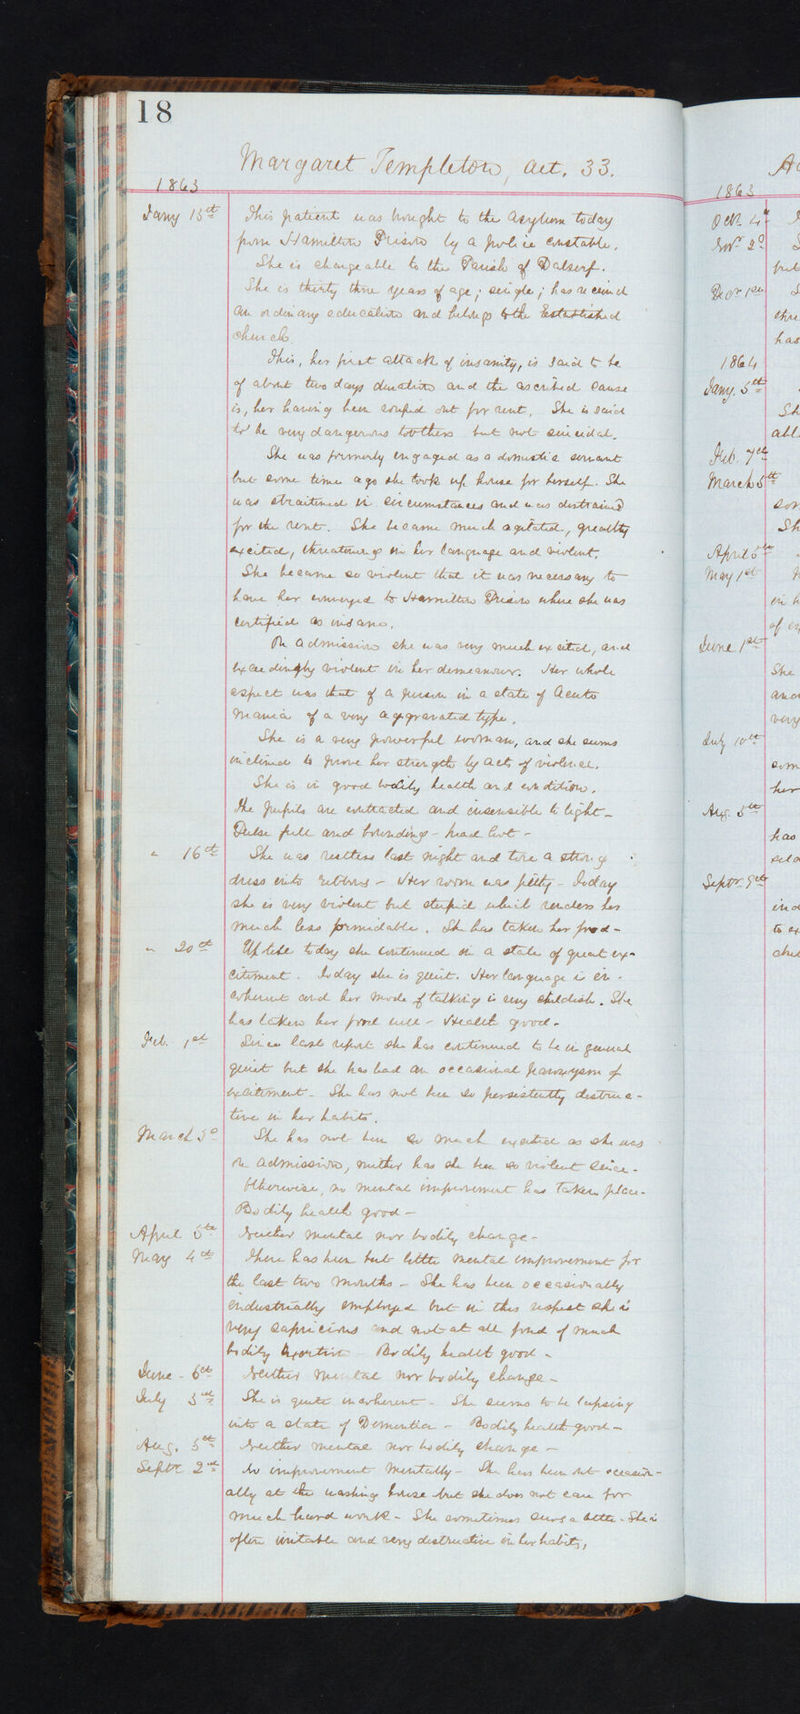 18
Margaret Templeton, aet. 33.
1863
Jany 15th This patient was brought to the asylum today
from Hamilton Prison by a police constable.
She is chargeable to the Parish of Dalserf.
She is thirty three years of age; single; has received
an ordinary education and belongs to the Established
church.
This, her first attack of insanity, is said to be
of about two days duration and the ascribed cause
is, her having been rouped out for rent. She is said
to be very dangerous to others but not suicidal.
She was formerly engaged as a domestic servant
but some time ago she took up house for herself. She
was straitened in circumstances and was distrained
for the rent. She became much agitated, greatly
excited, threatening in her language and violent.
She became so violent that it was necessary to
have her conveyed to Hamilton Prison where she was
certified as insane.
On admission she was very much excited, and
exceedingly violent in her demeanour. Her whole
aspect was that of a person in a state of Acute
Mania of a very aggravated type.
She is a very powerful woman, and she seems
inclined to prove her strength by acts of violence.
She is in good bodily health and condition.
The pupils are contracted and insensible to light -
Pulse full and bounding - head hot -
" 16th She was restless last night and tore a strong
dress into ribbons - Her room was filthy - Today
she is very violent but stupid which renders her
much less formidable. She has taken her food -
" 20th Up till today she continued in a state of great ex-
citement. Today she is quiet. Her language is in-
coherent and her mode of talking is very childish. She
has taken her food well - Health good -
Feb. 1st Since last report she has continued to be in general
quiet but she has had an occasional paroxysm of
excitement - She has not been so persistently destruc-
tive in her habits.
March 5th She has not been so much excited as she was
on admission, neither has she been so violent since -
Otherwise, no mental improvement has taken place -
Bodily health good -
April 5th Neither mental nor bodily change -
May 4th There has been but little mental improvement for
the last two months - She has been occasionally
industrially employed but in this respect she is
very capricious and not at all fond of much
bodily exertion - Bodily health good -
June 6th Neither mental nor bodily change -
July 3rd She is quite incoherent - She seems to be lapsing
into a state of Dementia - Bodily health good -
Aug. 5th Neither mental nor bodily change -
Septr 2nd No improvement mentally - She has been out occasion-
ally at the washing house but she does not care for
much hard work - She sometimes sews a little - She is
often irritable and very destructive in her habits.
1863
Oct. 4th
Novr 2d
Decr 1st
has
1864
Jany. 5th
Feb. 7th
March 5th
April 5th
May 1st
June 1st
She
very
July 10th
her
Aug. 5th
has
Septr 9th